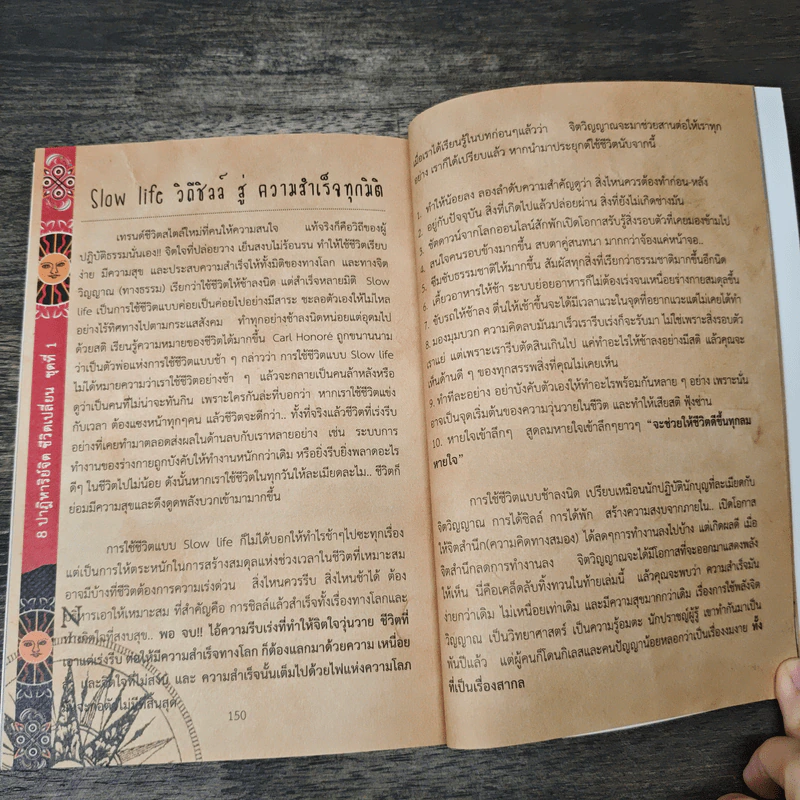 8 ปาฏิหาริย์จิต ชีวิตเปลี่ยน ชุดที่ 1
Slow life วิถีชิลล์ สู่ ความสำเร็จทุกมิติ
เทรนด์ชีวิตสไตล์ใหม่ที่คนให้ความสนใจ แท้จริงก็คือวิถีของผู้
ปฏิบัติธรรมนั่นเอง!! จิตใจที่ปล่อยวาง เย็นสงบไม่ร้อนรน ทำให้ใช้ชีวิตเรียบ
ง่าย มีความสุข และประสบความสำเร็จให้ทั้งมิติของทางโลก และทางจิต
วิญญาณ (ทางธรรม) เรียกว่าใช้ชีวิตช้าลงนิด แต่สำเร็จหลายมิติ Slow
life เป็นการใช้ชีวิตแบบค่อยเป็นค่อยไปอย่างมีสาระ ชะลอตัวเองให้ไม่ไหล
อย่างไร้ทิศทางไปตามกระแสสังคม ทำทุกอย่างช้าลงนิดหน่อยแต่อุดมไป
ด้วยสติ เรียนรู้ความหมายของชีวิตได้มากขึ้น Carl Honoré ถูกขนานนาม
ว่าเป็นตัวพ่อแห่งการใช้ชีวิตแบบช้า ๆ กล่าวว่า การใช้ชีวิตแบบ Slow life
ไม่ได้หมายความว่าเราใช้ชีวิตอย่างช้า ๆ แล้วจะกลายเป็นคนล้าหลังหรือ
ดูว่าเป็นคนที่ไม่น่าจะทันกิน เพราะใครกันล่ะที่บอกว่า หากเราใช้ชีวิตแข่ง
กับเวลา ต้องแซงหน้าทุกๆคน แล้วชีวิตจะดีกว่า.. ทั้งที่จริงแล้วชีวิตที่เร่งรีบ
อย่างที่เคยทำมาตลอดส่งผลในด้านลบกับเราหลายอย่าง เช่น ระบบการ
ทำงานของร่างกายถูกบังคับให้ทำงานหนักกว่าเดิม หรือยิ่งรีบยิ่งพลาดอะไร
ดีๆ ในชีวิตไปไม่น้อย ดังนั้นหากเราใช้ชีวิตในทุกวันให้ละเมียดละไม.. ชีวิตก็
ย่อมมีความสุขและดึงดูดพลังบวกเข้ามามากขึ้น
การใช้ชีวิตแบบ Slow life ก็ไม่ได้บอกให้ทำไรช้าๆไปซะทุกเรื่อง
แต่เป็นการให้ตระหนักในการสร้างสมดุลแห่งช่วงเวลาในชีวิตที่เหมาะสม
อาจมีบ้างที่ชีวิตต้องการความเร่งด่วน สิ่งไหนควรรีบ สิ่งไหนช้าได้ ต้อง
บริหารเอาให้เหมาะสม ที่สำคัญคือ การชิลล์แล้วสำเร็จทั้งเรื่องทางโลกและ
จิตใจที่สงบสุข.. พอ จบ!! ไอ้ความรีบเร่งที่ทำให้จิตใจวุ่นวาย ชีวิตที่
เอาแต่เร่งรีบ ต่อให้มีความสำเร็จทางโลก ก็ต้องแลกมาด้วยความ เหนื่อย
และจิตใจที่ไม่สงบ และ ความสำเร็จนั้นเต็มไปด้วยไฟแห่งความโลภ
ไม่มีที่สิ้นสุด
150
เมื่อเราได้เรียนรู้ในบทก่อนๆแล้วว่า จิตวิญญาณจะมาช่วยสานต่อให้เราทุก
อย่าง เราก็ได้เปรียบแล้ว หากนำมาประยุกต์ใช้ชีวิตนับจากนี้
1. ทำให้น้อยลง ลองลำดับความสำคัญดูว่า สิ่งไหนควรต้องทำก่อน-หลัง
2. อยู่กับปัจจุบัน สิ่งที่เกิดไปแล้วปล่อยผ่าน สิ่งที่ยังไม่เกิดช่างมัน
3. ชัตดาวน์จากโลกออนไลน์สักพักเปิดโอกาสรับรู้สิ่งรอบตัวที่เคยมองข้ามไป
4. สนใจคนรอบข้างมากขึ้น สบตาคู่สนทนา มากกว่าจ้องแค่หน้าจอ..
5. ซึมซับธรรมชาติให้มากขึ้น สัมผัสทุกสิ่งที่เรียกว่าธรรมชาติมากขึ้นอีกนิด
6. เคี้ยวอาหารให้ช้า ระบบย่อยอาหารก็ไม่ต้องเร่งจนเหนื่อยร่างกายสมดุลขึ้น
7. ขับรถให้ช้าลง ตื่นให้เช้าขึ้นจะได้มีเวลาแวะในจุดที่อยากแวะแต่ไม่เคยได้ทำ
8. มองมุมบวก ความคิดลบมันมาเร็วเรารีบเร่งก็จะรับมา ไม่ใช่เพราะสิ่งรอบตัว
เราแย่ แต่เพราะเรารีบตัดสินเกินไป แค่ทำอะไรให้ช้าลงอย่างมีสติ แล้วคุณจะ
เห็นด้านดี ๆ ของทุกสรรพสิ่งที่คุณไม่เคยเห็น
9. ทำทีละอย่าง อย่าบังคับตัวเองให้ทำอะไรพร้อมกันหลาย ๆ อย่าง เพราะนั่น
อาจเป็นจุดเริ่มต้นของความวุ่นวายในชีวิต และทำให้เสียสติ ฟุ้งซ่าน
10. หายใจเข้าลึกๆ สูดลมหายใจเข้าลึกๆยาวๆ "จะช่วยให้ชีวิตดีขึ้นทุกลม
หายใจ"
การใช้ชีวิตแบบช้าลงนิด เปรียบเหมือนนักปฏิบัตินักบุญที่ละเมียดกับ
จิตวิญญาณ การได้ชิลล์ การได้พัก สร้างความสงบจากภายใน.. เปิดโอกาส
ให้จิตสำนึก(ความคิดทางสมอง) ได้ลดๆการทำงานลงไปบ้าง แต่เกิดผลดี เมื่อ
จิตสำนึกลดการทำงานลง จิตวิญญาณจะได้มีโอกาสที่จะออกมาแสดงพลัง
ให้เห็น นี่คือเคล็ดลับทิ้งทวนในท้ายเล่มนี้ แล้วคุณจะพบว่า ความสำเร็จมัน
ง่ายกว่าเดิม ไม่เหนื่อยเท่าเดิม และมีความสุขมากกว่าเดิม เรื่องการใช้พลังจิต
วิญญาณ เป็นวิทยาศาสตร์ เป็นความรู้อมตะ นักปราชญ์ผู้รู้ เขาทำกันมาเป็น
พันปีแล้ว แต่ผู้คนก็โดนกิเลสและคนปัญญาน้อยหลอกว่าเป็นเรื่องงมงาย ทั้ง
ที่เป็นเรื่องสากล